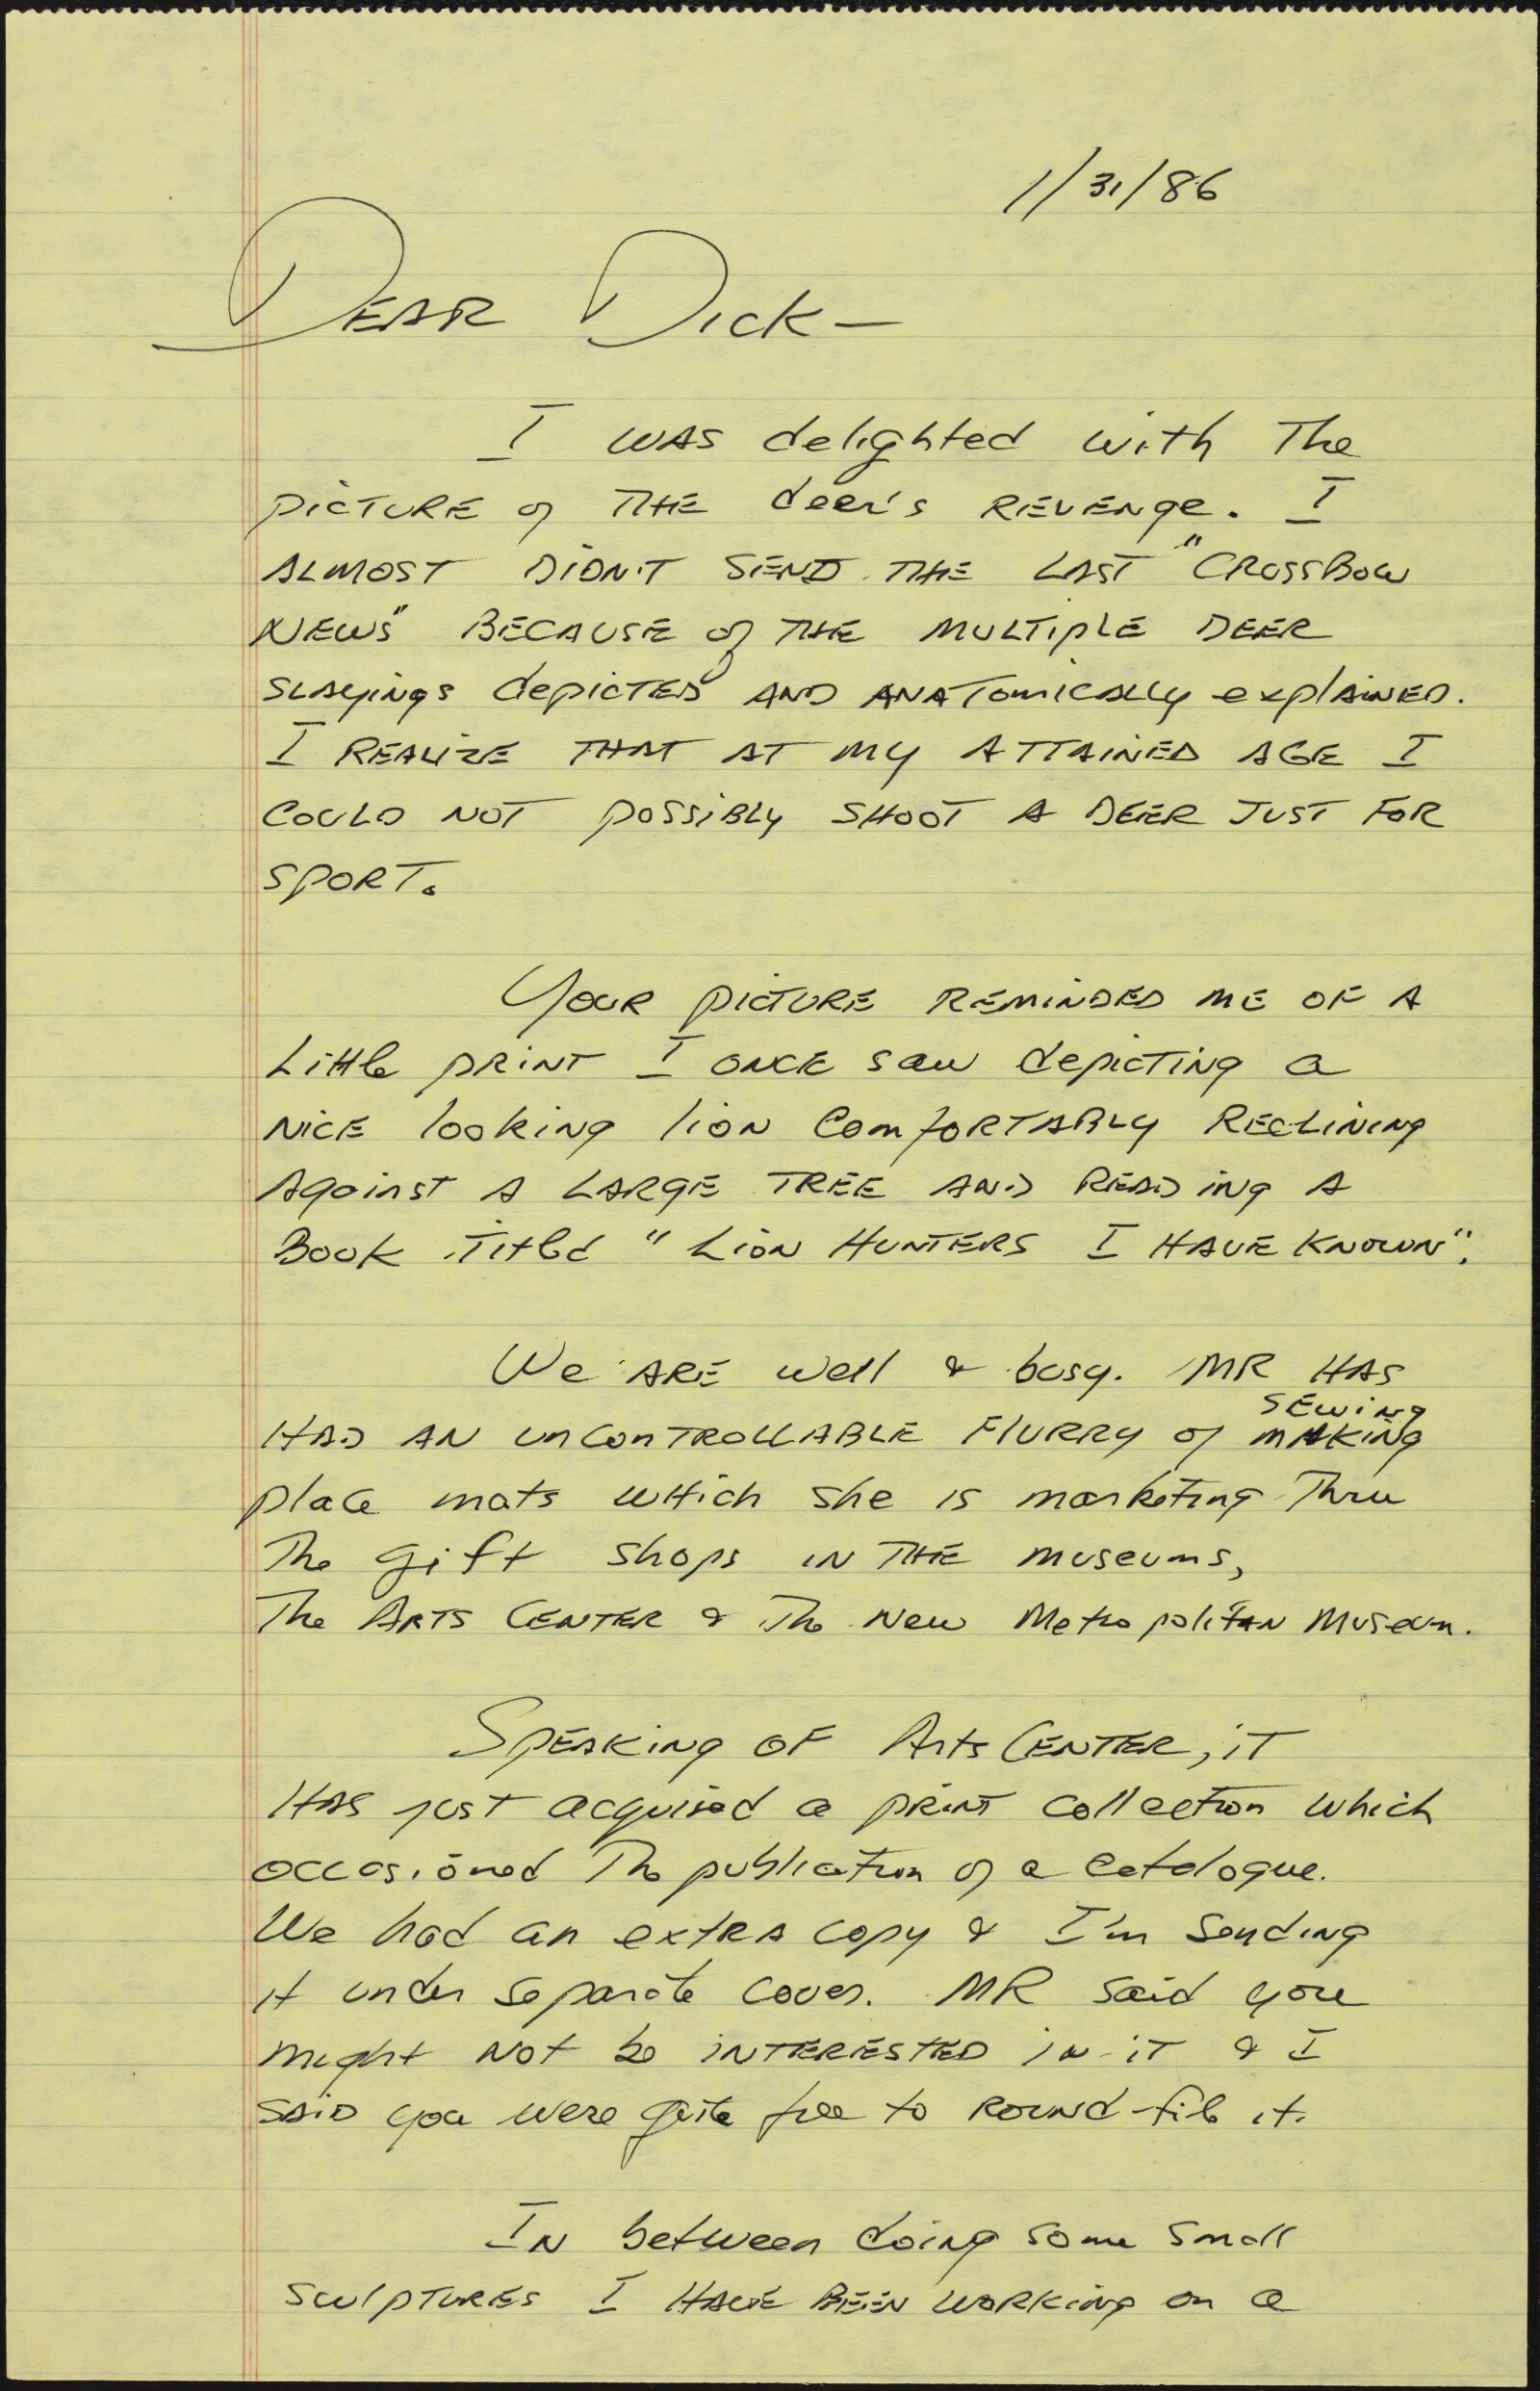 1/31/86
DEAR DICK —
I WAS delighted with The
picTURE of THE deer's REVENge. I
ALMOST DIDN'T SEND THE LAST "CROSSBOW
NEWS" BECAUSE of THE MULTIPLE DEER
SLAYings depicTED AND ANATomicALLy explAINED.
I REALIZE THAT AT MY ATTAINED AGE I
COULD NOT possiBLy SHOOT A DEER JUST FOR
SPORT.
YOUR picTURE REMINDED ME OF A
Little PRINT I ONCE saw depicTing a
NICE looking lion ComfORTABLY RECLining
Against A LARGE TREE AND READing A
Book Titled "Lion HUNTERS I HAVE KNOWN".
We ARE well & busy. MR HAS
HAD AN unconTROLLABLE FlURRY of making SEWing
place mats WHich she is marketing Thru
The gift shops IN THE museums,
The ARTS CENTER & The New MetropoliTAN Museum.
SPEAKing OF Arts CENTER, iT
HAS just acquired a PRINT collection which
occasioned The publication of a catalogue.
We had an extRA copy & I'm sending
it under separate cover. MR said you
might Not be INTERESTED in iT & I
SAID you were quite free to ROUNd-file it.
IN between doing some small
SculPTURES I HAVE BEEN WORKing on a